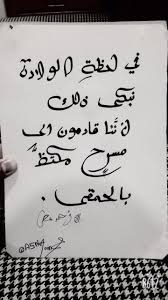 في لحظة الولادة
نبكي ذلك
لأننا قادمون الى
مسرح مكتظٌ
بالحمقى .